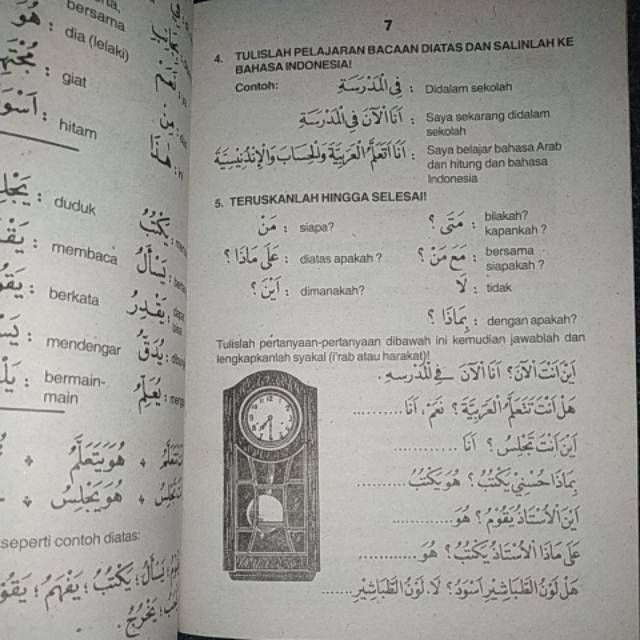 bersama
هُوَ : dia (lelaki)
giat
hitam
duduk
membaca
berkata
mendengar
bermain-
main
هُوَ يَتَعَلَّمُ
هُوَ يَجْلِسُ
seperti contoh diatas:
نَعَمْ
مِنْ
هٰذَا
يَكْتُبُ
يَسْأَلُ
يَقْدِرُ
يَدُقُّ
يُعَلِّمُ
7
4. TULISLAH PELAJARAN BACAAN DIATAS DAN SALINLAH KE
BAHASA INDONESIA!
Contoh: فِي الْمَدْرَسَةِ : Didalam sekolah
أَنَا الْآنَ فِي الْمَدْرَسَةِ : Saya sekarang didalam
sekolah
أَنَا أَتَعَلَّمُ الْعَرَبِيَّةَ وَالْحِسَابَ وَالْإِنْدُنِيْسِيَّةَ : Saya belajar bahasa Arab
dan hitung dan bahasa
Indonesia
5. TERUSKANLAH HINGGA SELESAI!
مَنْ : siapa? مَتَى ؟ : bilakah?
kapankah ?
عَلَى مَاذَا ؟ : diatas apakah ? مَعَ مَنْ ؟ : bersama
siapakah ?
أَيْنَ ؟ : dimanakah? لَا : tidak
بِمَاذَا ؟ : dengan apakah?
Tulislah pertanyaan-pertanyaan dibawah ini kemudian jawablah dan
lengkapkanlah syakal (i'rab atau harakat)!
أَيْنَ أَنْتَ الْآنَ؟ أَنَا الْآنَ فِي الْمَدْرَسِهِ.
هَلْ أَنْتَ تَتَعَلَّمُ الْعَرَبِيَّةَ؟ نَعَمْ، أَنَا..........
أَيْنَ أَنْتَ تَجْلِسُ؟ أَنَا ..............
بِمَاذَا حُسْنِيْ يَكْتُبُ؟ هُوَ يَكْتُبُ...........
أَيْنَ الْأُسْتَاذُ يَقُوْمُ؟ هُوَ............
عَلَى مَاذَا الْأُسْتَاذُ يَكْتُبُ؟ هُوَ............
هَلْ لَوْنُ الطَّبَاشِيْرِ أَسْوَدُ؟ لَا، لَوْنُ الطَّبَاشِيْرِ.......